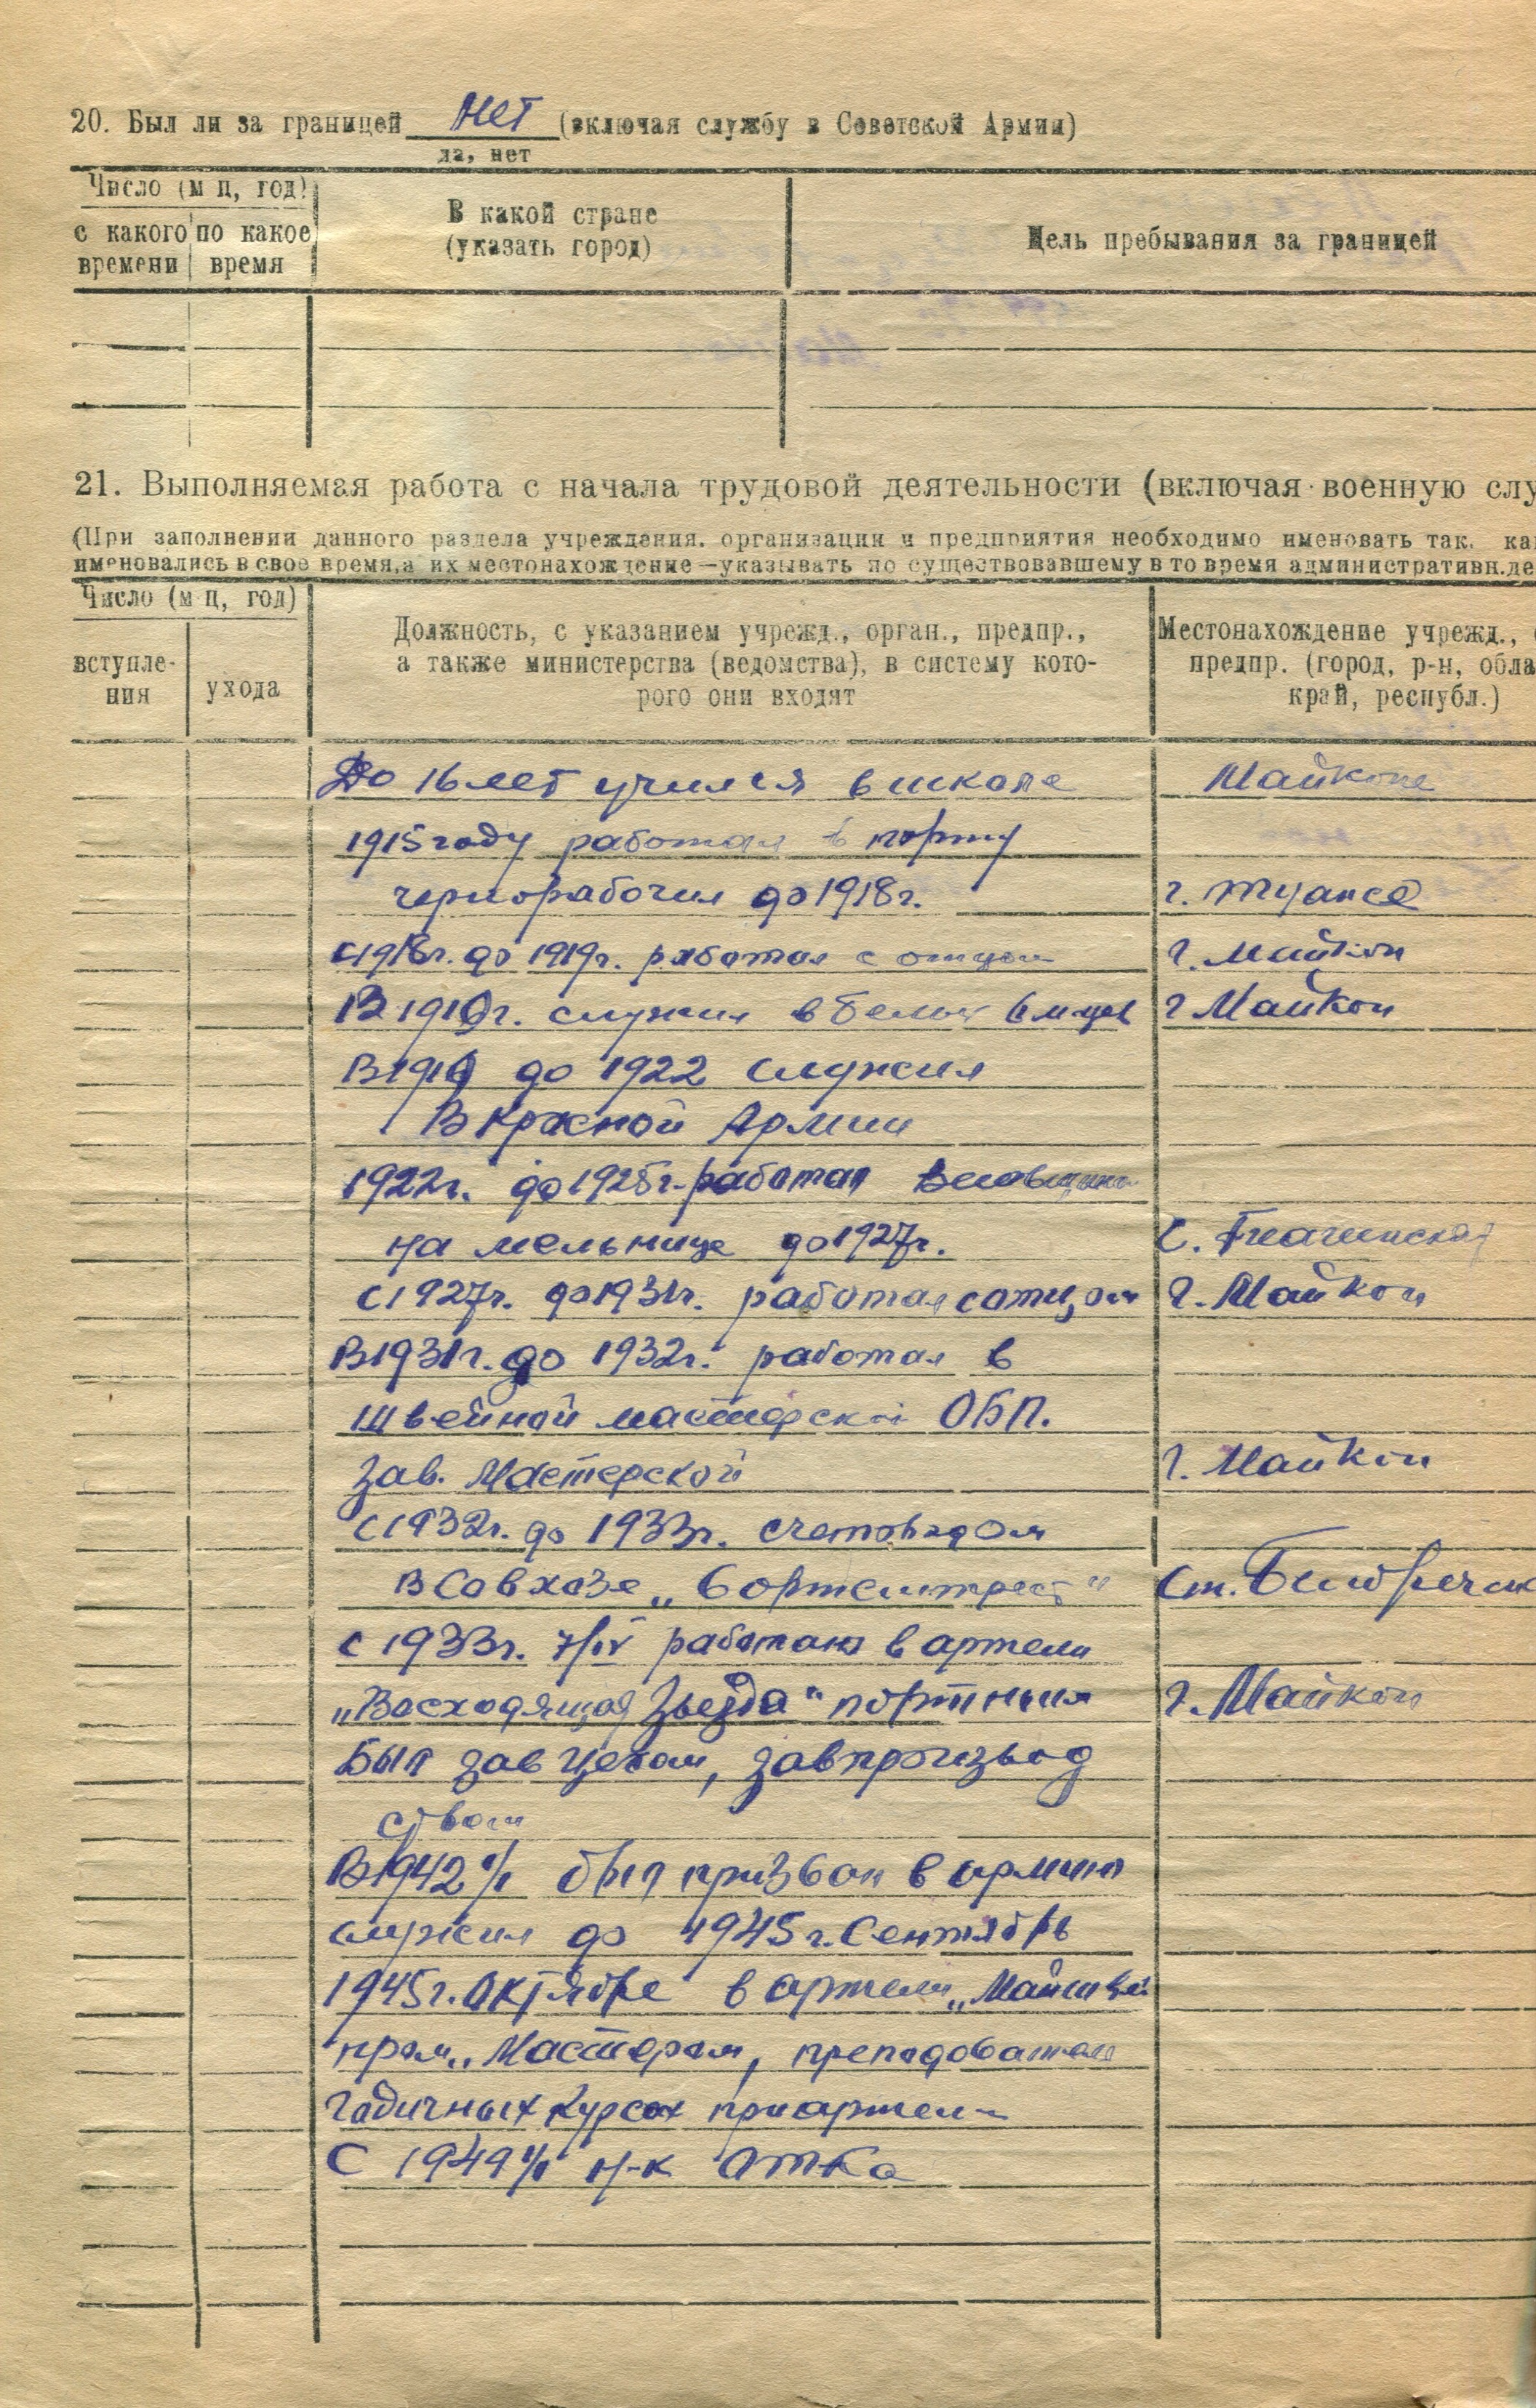 20. Был ли за границей нет (включая службу в Советской Армии)
да, нет
Число (м ц, год)
с какого времени
по какое время
В какой стране
(указать город)
Цель пребывания за границей
21. Выполняемая работа с начала трудовой деятельности (включая военную слу
(При заполнении данного раздела учреждения, организации и предприятия необходимо именовать так, ка
именовались в свое время, а их местонахождение—указывать по существовавшему в то время административн. де
Число (м ц, год)
вступле-
ния
ухода
Должность, с указанием учрежд., орган., предпр.,
а также министерства (ведомства), в систему кото-
рого они входят
Местонахождение учрежд.,
предпр. (город, р-н, обла
край, республ.)
До 16 лет учился в школе Майкопе
1915 году работал в порту
чернорабочим до 1918г. г. Туапсе
С 1918г. до 1919г. работал с отцом г. Майкоп
В 1919г. служил в белых 6 м-цев г Майкоп
В 1919 до 1922 служил
В Красной Армии
1922г. до 1925г. работал
на мельнице до 1927г.
С 1927г. до 1931г. работал с отцом г. Майкоп
В 1931г. до 1932г. работал в
швейной мастерской ОБП.
зав. Мастерской г. Майкоп
С 1932г. до 1933г. счетоводом
В Совхозе Ст.
С 1933г. 7/IV работаю в артели
„Восходящая Звезда" портным г. Майкоп
Был зав цехом, завпроизвод
ством
В 1942 г. был призван в армию
служил до 1945 г. Сентябрь
1945г. Октябре в артели „Майшвей
пром„ Мастером, преподователь
Годичных курсах при артели
С 1949 г. н-к ОТКа